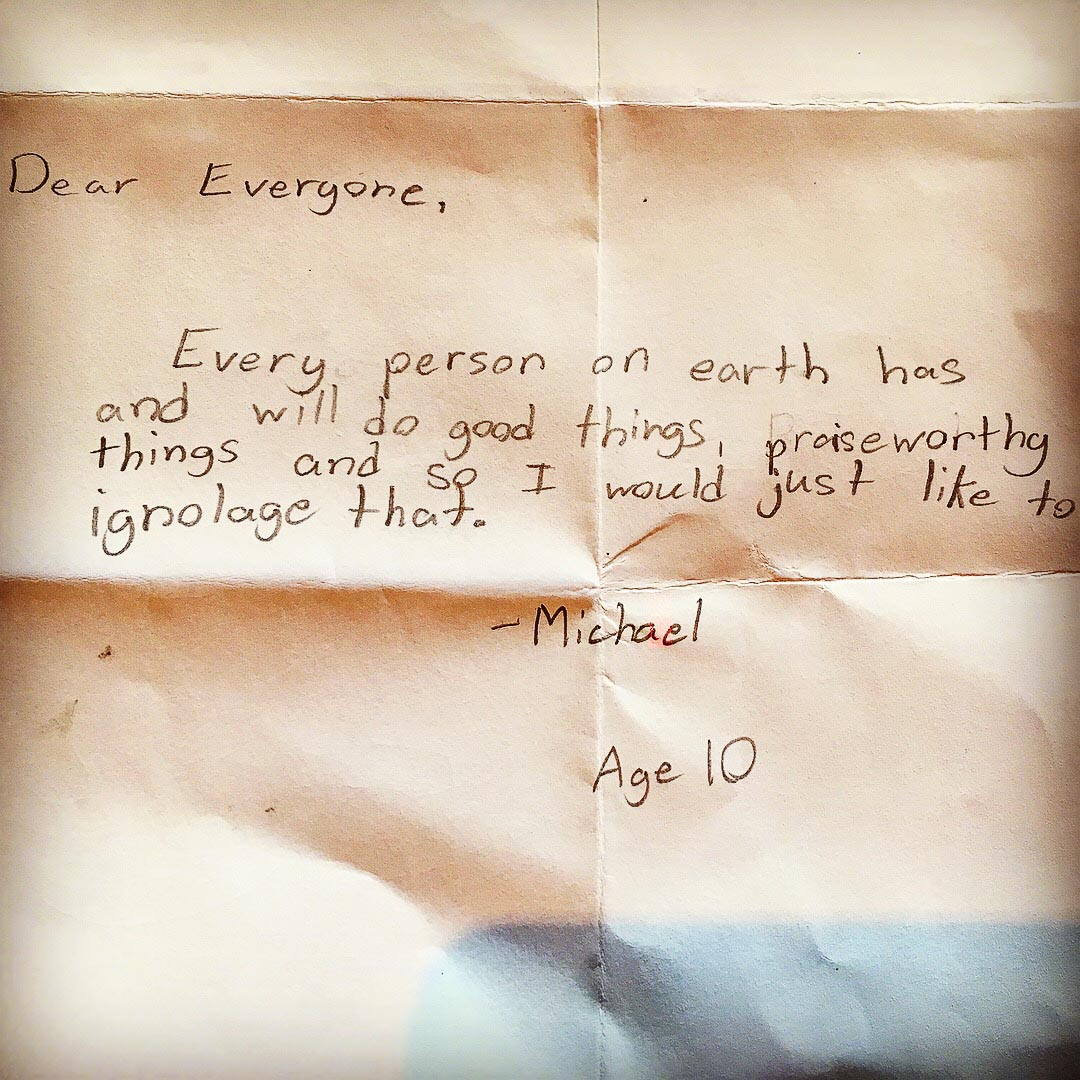 Dear Everyone,
Every person on earth has
and will do good things, praiseworthy
things and so I would just like to
ignolage that.
-Michael
Age 10